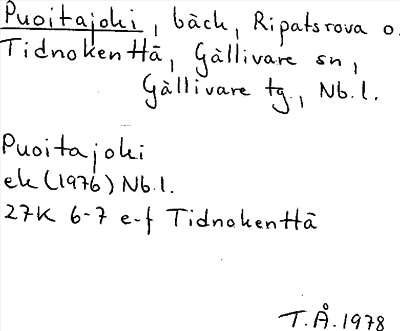 Puoitajoki, bäck, Ripatsrova o.
Tidnokenttä, Gällivare sn,
Gällivare tg., Nb.l.
Puoitajoki
ek (1976) Nb.l.
27K 6-7 e-f Tidnokenttä
T.Å.1978